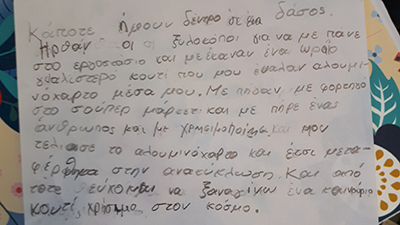 Κάποτε ήμουν δέντρο σε ένα δάσος.
Ήρθαν οι ξυλοκόποι για να με πανε
στο εργοστάσιο και με έκαναν ένα ωραίο
γυαλιστερό κουτί που μου έβαλαν αλουμι
νόχαρτο μέσα μου. Με πήγαν με φορτηγό
στο σούπερ μάρκετ και με πήρε ένας
άνθρωπος και με χρησιμοποίησε και μου
τελιωσε το αλουμινόχαρτο και έτσι μετα-
φέρθηκα στην ανακύκλωση. Και από
τότε εύχομαι να ξαναγίνω ένα καινούριο
κουτί, χρήσιμο στον κόσμο.